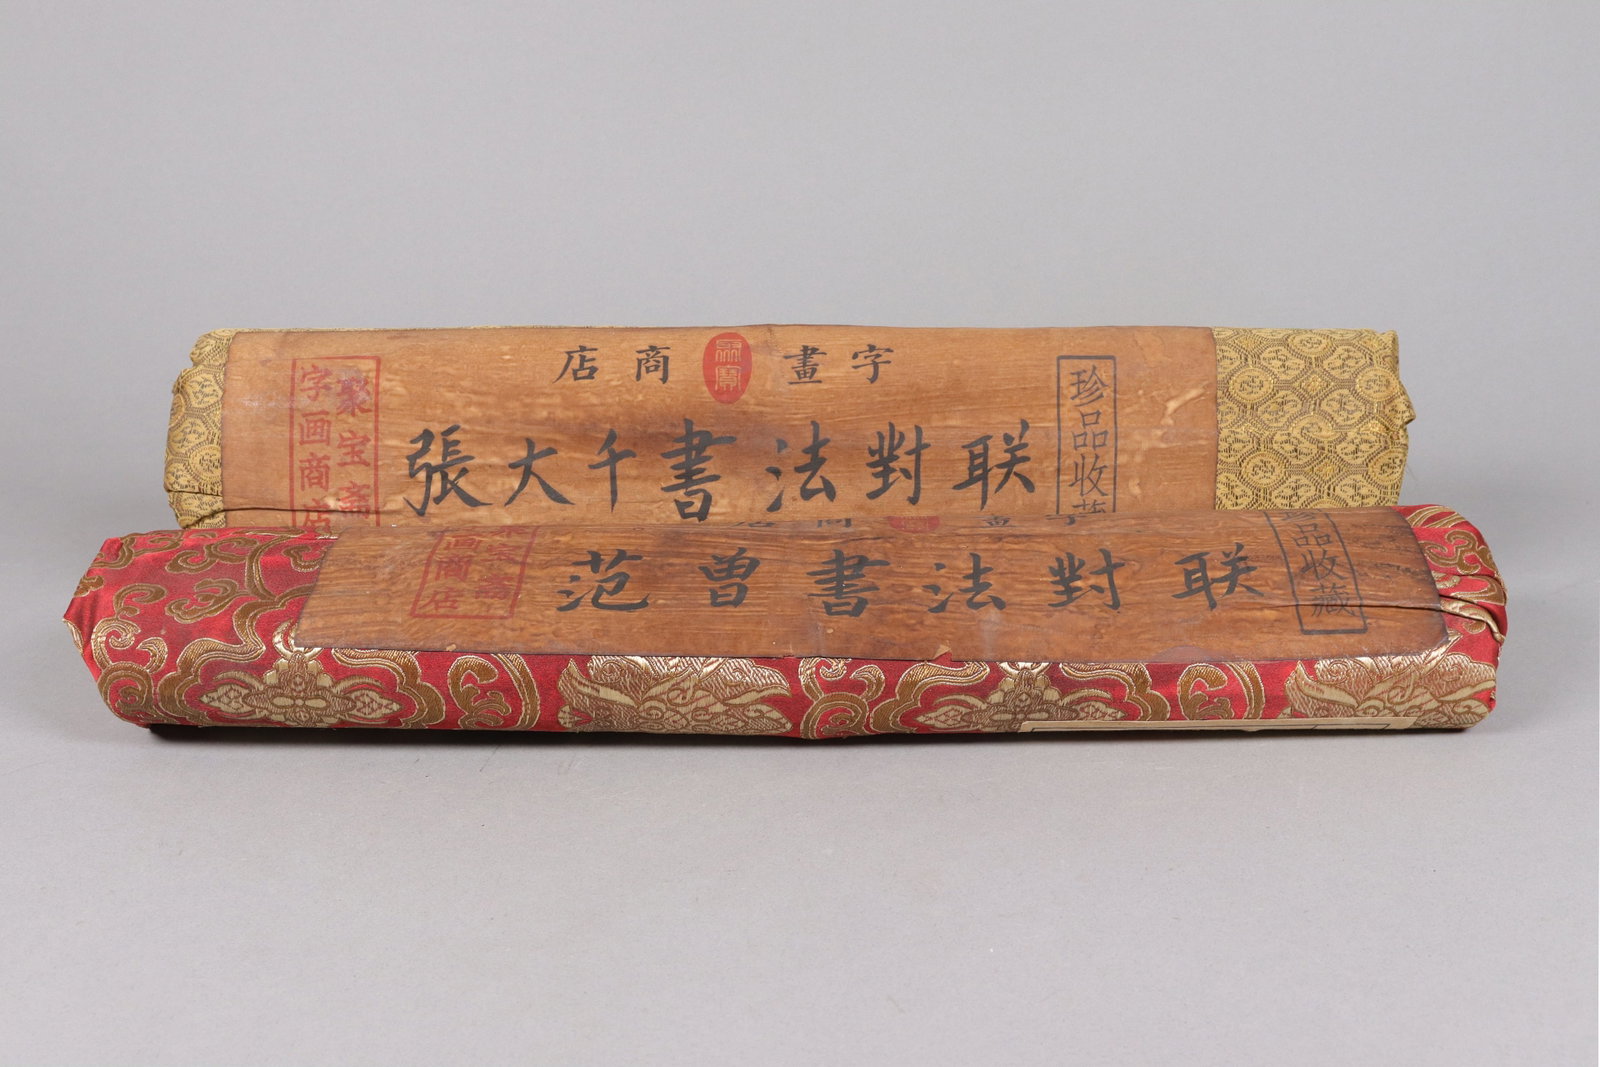 店商畫字
聚宝斋
字画商店
張大千書法對联
珍品收藏
斋
画商店
范曾書法對联
珍品收藏